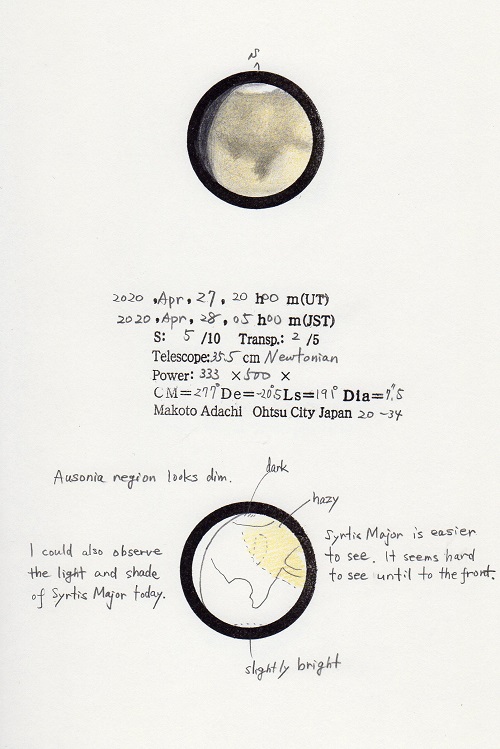 S
2020, Apr, 27, 20 h00 m(UT)
2020, Apr, 28, 05 h00 m(JST)
S: 5 /10 Transp.: 2 /5
Telescope: 35.5 cm Newtonian
Power: 333 ×500 ×
CM=277° De=-20°5 Ls=191° Dia=7".5
Makoto Adachi Ohtsu City Japan 20-34
dark
Ausonia region looks dim.
hazy
Syrtis Major is easier
to see. It seems hard
to see until to the front.
I could also observe
the light and shade
of Syrtis Major today.
slightly bright